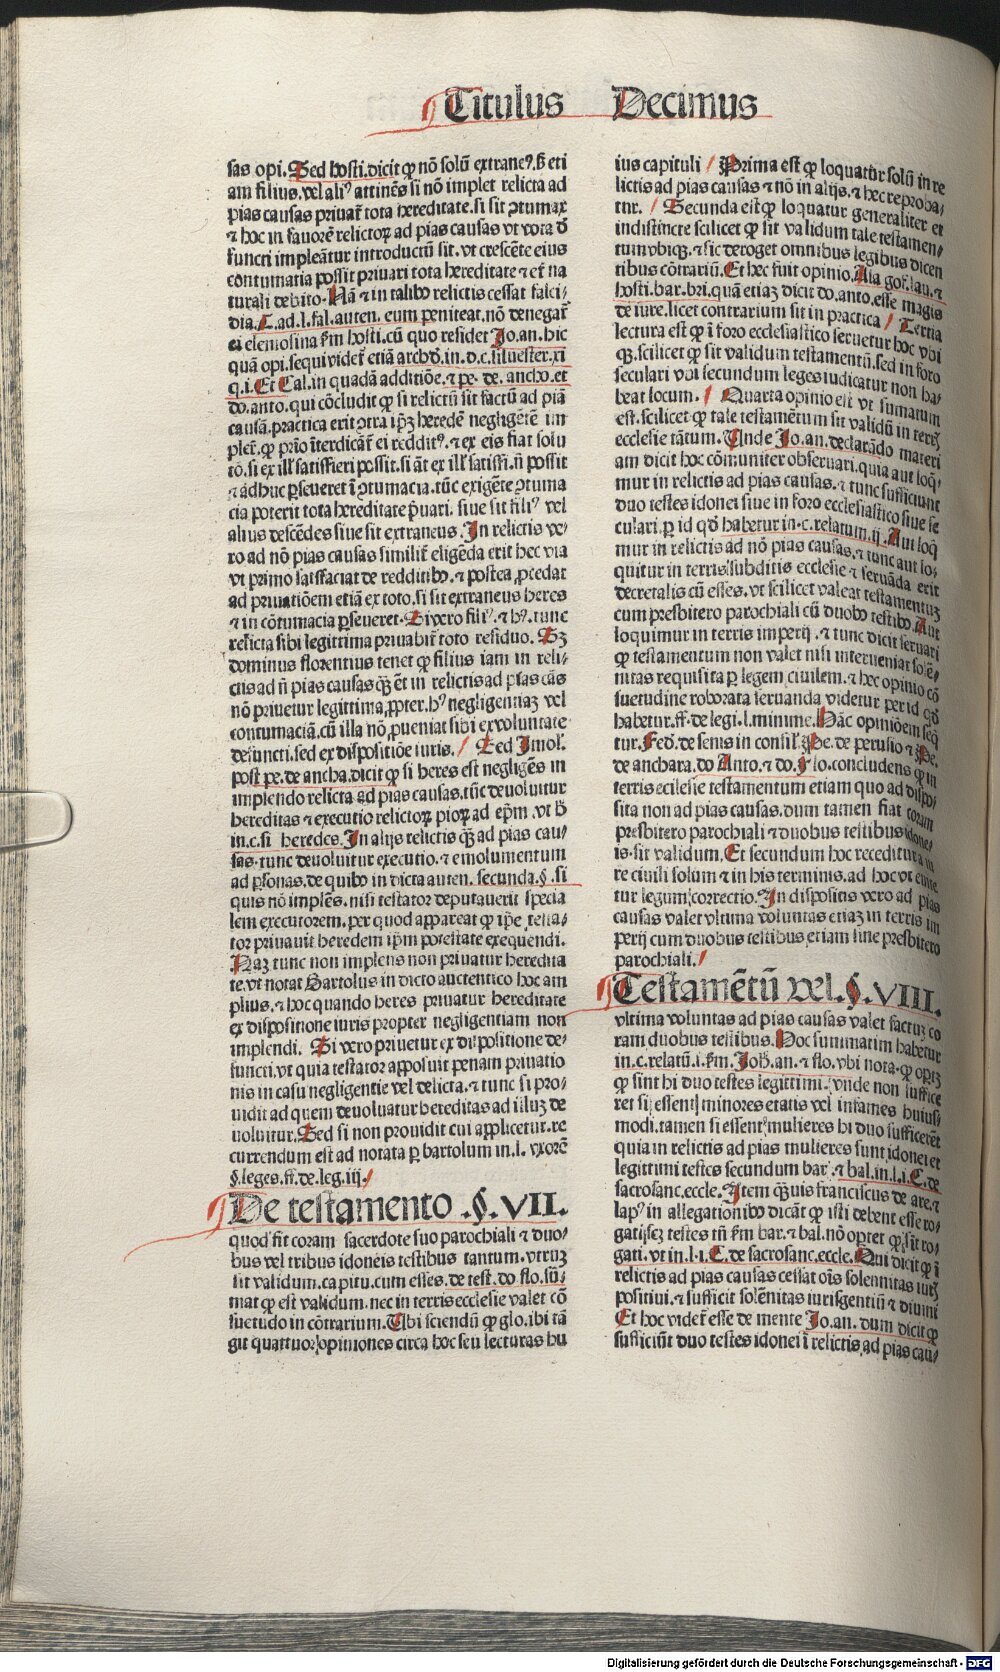 Titulus Decimus
sas opi. Sed hosti. dicit ꝙ nō solū extraneꝰ, sꝫ eti
am filius. vel aliꝰ attinēs si nō implet relicta ad
pias causas priuat̄ tota hereditate. si sit ꝯtumax
⁊ hoc in fauorē relictoꝝ ad pias causas vt vota d̄
functi impleātur introductū sit. vt crescēte eius
contumatia possit priuari tota hereditate ⁊ et̄ na
turali debito. Nā ⁊ in talibꝰ relictis cessat falci⸗
dia. C. ad. l. fal. auten. eum peniteat. nō denegat̄
ei elemosina s̄m hosti. cū quo residet Jo. an. hic
quā opi. sequi videt̄ etiā archid̄. in. d. c. siluester. xi
q. i. Et Cal. in quadā additiōe. ⁊ pe. de. ancho. et
do. anto. qui cōcludit ꝙ si relictū sit factū ad piā
causā. practica erit ꝯtra ip̄ꝫ heredē negligētē im
plet̄. ꝙ prīo īterdicāt̄ ei redditꝰ. ⁊ ex eis fiat solu
tō. si ex ill̄ satisfieri possit. si āt̄ ex ill̄ satisfi. n̄ possit
⁊ adhuc ꝑseueret ī ꝯtumacia. tūc exigēte ꝯtuma
cia poterit tota hereditate p̄uari. siue sit filiꝰ vel
alius descēdēs siue sit extraneus. In relictis ve⸗
ro ad nō pias causas similit̄ eligēda erit hec via
vt primo satisfaciat de redditibꝰ. ⁊ postea ꝓcedat
ad priuatiōem etiā ex toto. si sit extraneus heres
⁊ in cōtumacia ꝑseueret. Si vero filiꝰ. ⁊ hꝰ. tunc
relicta sibi legittima priuabit̄ toto residuo. Sꝫ
dominus florentius tenet ꝙ filius iam in reli⸗
ctis ad n̄ pias causas qꝫ et̄ in relictis ad pias cās
nō priuetur legittima, ꝓpter. hꝰ negligentiaꝫ vel
contumaciā. cū illa nō ꝓueniat sibi ex voluntate
defuncti. sed ex dispositiōe iuris. Sed Imol̄.
post pe. de ancha. dicit ꝙ si heres est negligēs in
implendo relicta ad pias causas. tūc deuoluitur
hereditas ⁊ executio relictoꝝ pioꝝ ad ep̄m. vt h̄
in. c. si heredes. In alijs relictis qꝫ ad pias cau⸗
sas. tunc deuoluitur executio. ⁊ emolumentum
ad ꝑsonas. de quibꝰ in dicta auten. secunda. §. si
quis nō implēs. nisi testator deputauerit specia
lem executorem. per quod appareat ꝙ ip̄e testa⸗
tor priuauit heredem ip̄m potestate exequendi.
Naꝫ tunc non implens non priuatur heredita
te. vt notat Bartolus in dicto auctentico hoc am
plius. ⁊ hoc quando heres priuatur hereditate
ex dispositione iuris propter negligentiam non
implendi. Si vero priuetur ex dispositione de⸗
functi. vt quia testator apposuit penam priuatio
nis in casu negligentie vel delicta. ⁊ tunc si pro⸗
uidit ad quem deuoluatur hereditas ad illuꝫ de
uoluitur. Sed si non prouidit cui applicetur. re
currendum est ad notata ꝑ bartolum in. l. vxorē
§. leges. ff. de. leg. iij.
De testamento .§. VII.
quod fit coram sacerdote suo parochiali ⁊ duo⸗
bus vel tribus idoneis testibus tantum. vtruꝫ
sit validum. ca pitu. cum esses. de test. do. flo. sū⸗
mat ꝙ est validum. nec in terris ecclesie valet cō
suetudo in cōtrarium. Ubi sciendū ꝙ glo. ibi tā
git quattuor opiniones circa hoc seu lecturas hu
ius capituli Prima est ꝙ loquatur solū in re
lictis ad pias causas ⁊ nō in alijs. ⁊ hec reproba⸗
tur. Secunda est ꝙ loquatur generaliter et
indistincte scilicet ꝙ sit validum tale testamen⸗
tum vbiqꝫ. ⁊ sic deroget omnibus legibus dicen
tibus cōtrariū. Et hec fuit opinio. Ala. gof. lau. ⁊
hosti. bar. bri. quā etiaꝫ dicit do. anto. esse magis
de iure. licet contrarium sit in practica Tertia
lectura est ꝙ ī foro ecclesiastico seruetur hoc vbi
qꝫ. scilicet ꝙ sit validum testamentū. sed in foro
seculari vbi secundum leges iudicatur non ha⸗
beat locum. Quarta opinio est vt sumatum
est. scilicet ꝙ tale testamētum sit validū in terris
ecclesie tātum. Unde Jo. an. declarādo materi
am dicit hoc cōmuniter obseruari. quia aut loqͥ⸗
mur in relictis ad pias causas. ⁊ tunc sufficiunt
duo testes idonei siue in foro ecclesiastico siue se
culari. ꝑ id qd̄ habetur in. c. relatum. ij. Aut loqͥ
mur in relictis ad nō pias causas. ⁊ tunc aut lo⸗
quitur in terris subditis ecclesie ⁊ seruāda erit
decretalis cū esses. vt scilicet valeat testamentuꝫ
cum presbitero parochiali cū duobꝰ testibꝰ. Aut
loquimur in terris imperij. ⁊ tunc dicit seruari
ꝙ testamentum non valet nisi interueniat solē⸗
nitas requisita ꝑ legem ciuilem. ⁊ hec opinio cō
suetudine roborata seruanda videtur per id qd̄
habetur. ff. de legi. l. minime. Hāc opinioēm seqͥ
tur. Fed̄. de senis in consil̄. Pe. de perusio ⁊ Pe.
de anchara. do Anto. ⁊ do. Flo. concludens ꝙ in
terris ecclesie testamentum etiam quo ad dispo⸗
sita non ad pias causas. dum tamen fiat coram
presbitero parochiali ⁊ duobus testibus idone⸗
is. sit validum. Et secundum hoc receditur a iu
re ciuili solum ⁊ in his terminis. ad hoc vt euite
tur legum correctio. In dispositis vero ad pias
causas valet vltima voluntas etiaꝫ in terris im
perij cum duobus testibus etiam sine presbitero
parochiali.
Testamētū vel. §. VIII.
vltima voluntas ad pias causas valet factuꝫ co
ram duobus testibus. Hoc summatim habetur
in. c. relatū. i. s̄m. Joh̄. an. ⁊ flo. vbi nota. ꝙ oportꝫ
ꝙ sint hi duo testes legittimi. vnde non suffice
ret si essent minores etatis vel infames huius⸗
modi. tamen si essent mulieres hi duo sufficerēt
quia in relictis ad pias mulieres sunt idonei et
legittimi testes secundum bar. ⁊ bal. in. l. i. C. de
sacrosanc. eccle. Item qꝫuis franciscus de are. ⁊
lapꝰ in allegationibꝰ dicāt ꝙ isti debent esse ro⸗
gati. sꝫ testes tn̄ s̄m bar. ⁊ bal. nō optet ꝙ sit ro⸗
gati. vt in. l. i. C. de sacrosanc. eccle. Qui dicit ꝙ ī
relictis ad pias causas cessat oīs solennitas iurꝭ
positiui. ⁊ sufficit solēnitas iuris gentiū ⁊ diuini
Et hoc videt̄ esse de mente Jo. an. dum dicit ꝙ
sufficiūt duo testes idonei ī relictis, ad pias cau⸗
Digitalisierung gefördert durch die Deutsche Forschungsgemeinschaft - DFG